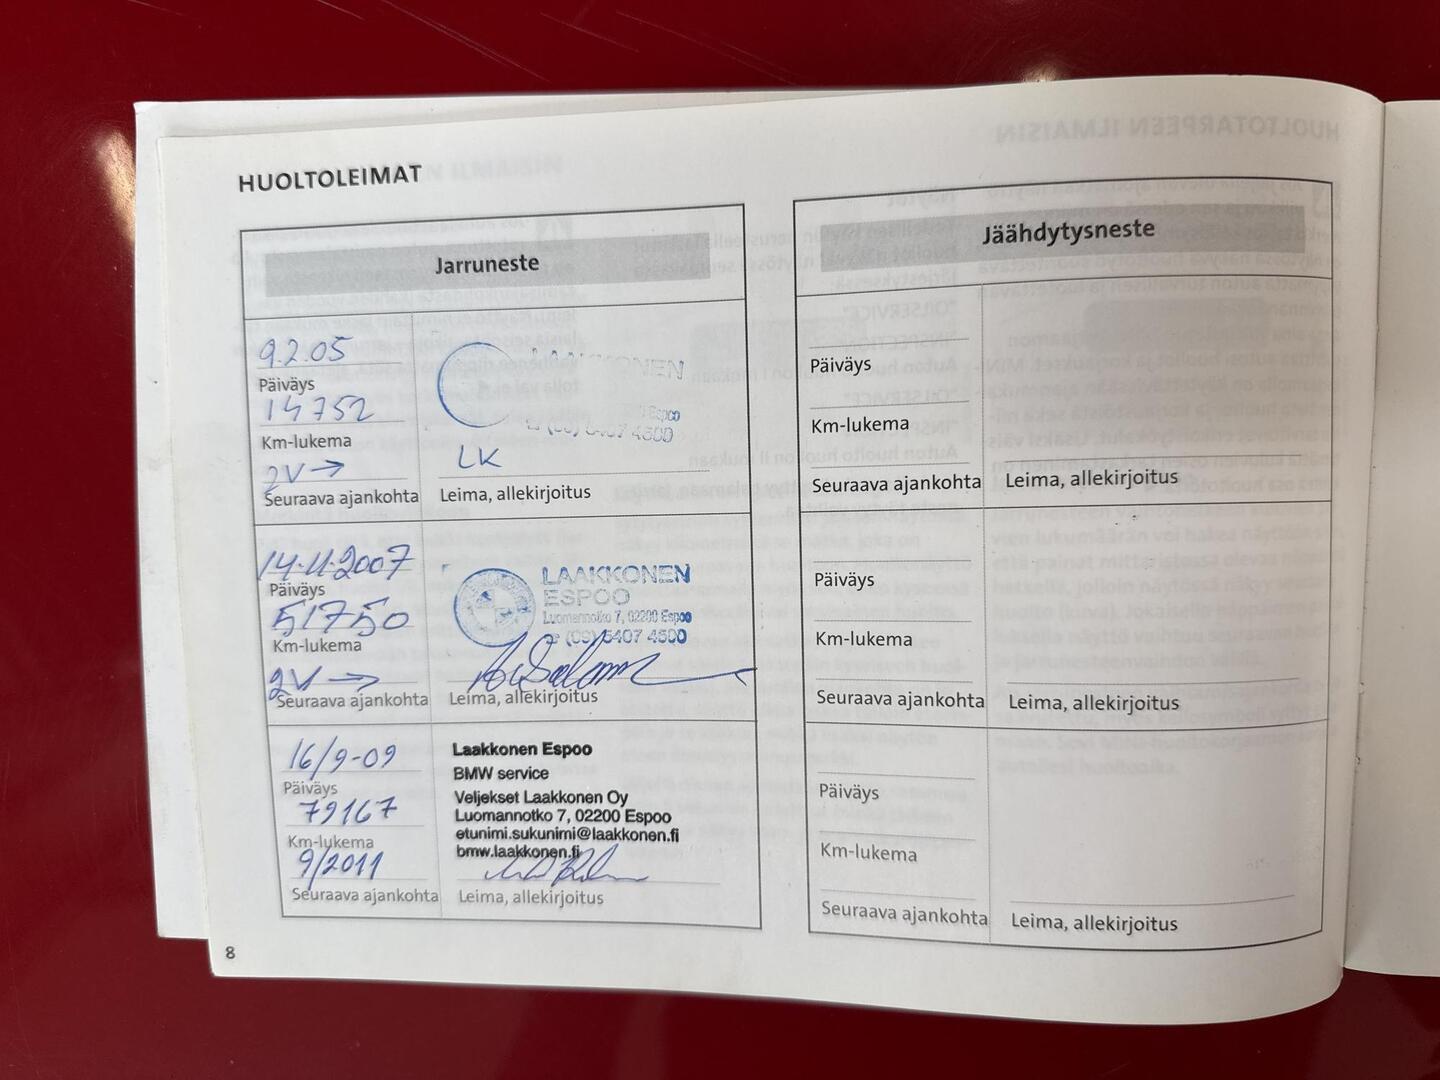 HUOLTOLEIMAT
Jarruneste
9.2.05
Päiväys
14752
Km-lukema
2V →
Seuraava ajankohta
LAAKKONEN
Espoo
(09) 5407 4500
LK
Leima, allekirjoitus
14.11.2007
Päiväys
51750
Km-lukema
2V →
Seuraava ajankohta
LAAKKONEN
ESPOO
Luomannotko 7, 02200 Espoo
☎ (09) 5407 4500
Leima, allekirjoitus
16/9-09
Päiväys
79167
Km-lukema
9/2011
Seuraava ajankohta
Laakkonen Espoo
BMW service
Veljekset Laakkonen Oy
Luomannotko 7, 02200 Espoo
etunimi.sukunimi@laakkonen.fi
bmw.laakkonen.fi
Leima, allekirjoitus
Jäähdytysneste
Päiväys
Km-lukema
Seuraava ajankohta
Leima, allekirjoitus
Päiväys
Km-lukema
Seuraava ajankohta
Leima, allekirjoitus
Päiväys
Km-lukema
Seuraava ajankohta
Leima, allekirjoitus
8